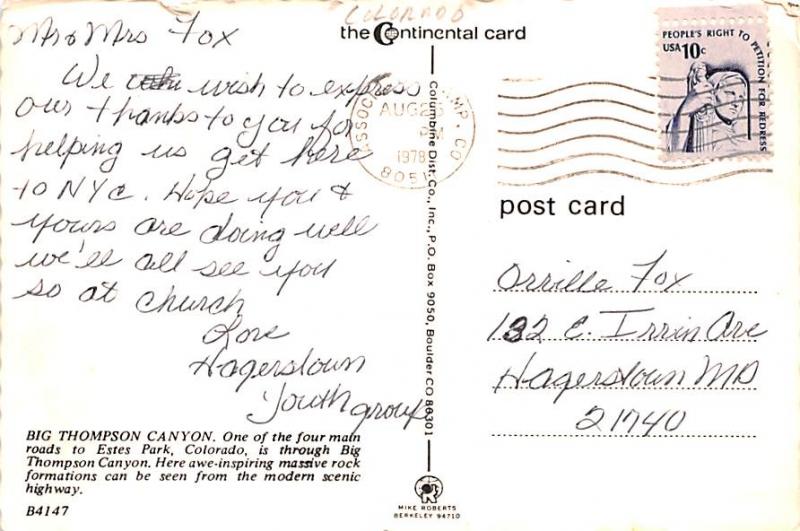 COLORADO
the Continental card
Mr & Mrs Fox
We wish to express
our thanks to you for
helping us get here
to NYC. Hope you &
yours are doing well
we'll all see you
so at church
Love
Hagerstown
Youth group
BIG THOMPSON CANYON. One of the four main
roads to Estes Park, Colorado, is through Big
Thompson Canyon. Here awe-inspiring massive rock
formations can be seen from the modern scenic
highway.
B4147
Columbine Dist. Co., Inc., P.O. Box 9050, Boulder CO 80301
MIKE ROBERTS
BERKELEY 94710
AUG 25
PM
1978
PEOPLE'S RIGHT TO PETITION FOR REDRESS
USA 10c
post card
Orville Fox
132 E. Irvin Ave
Hagerstown MD
21740